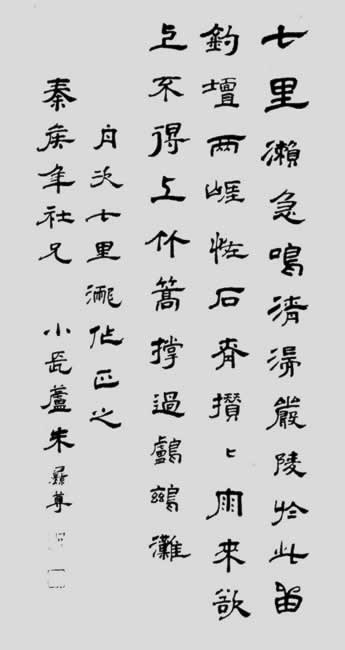 七里瀨急鳴清湍嚴陵於此留
釣壇兩崕怪石齊攢〻雨來欲
上不得上竹篙撐過鸕鷀灘
舟次七里瀧作正之
秦矦年社兄 小長蘆朱彝尊